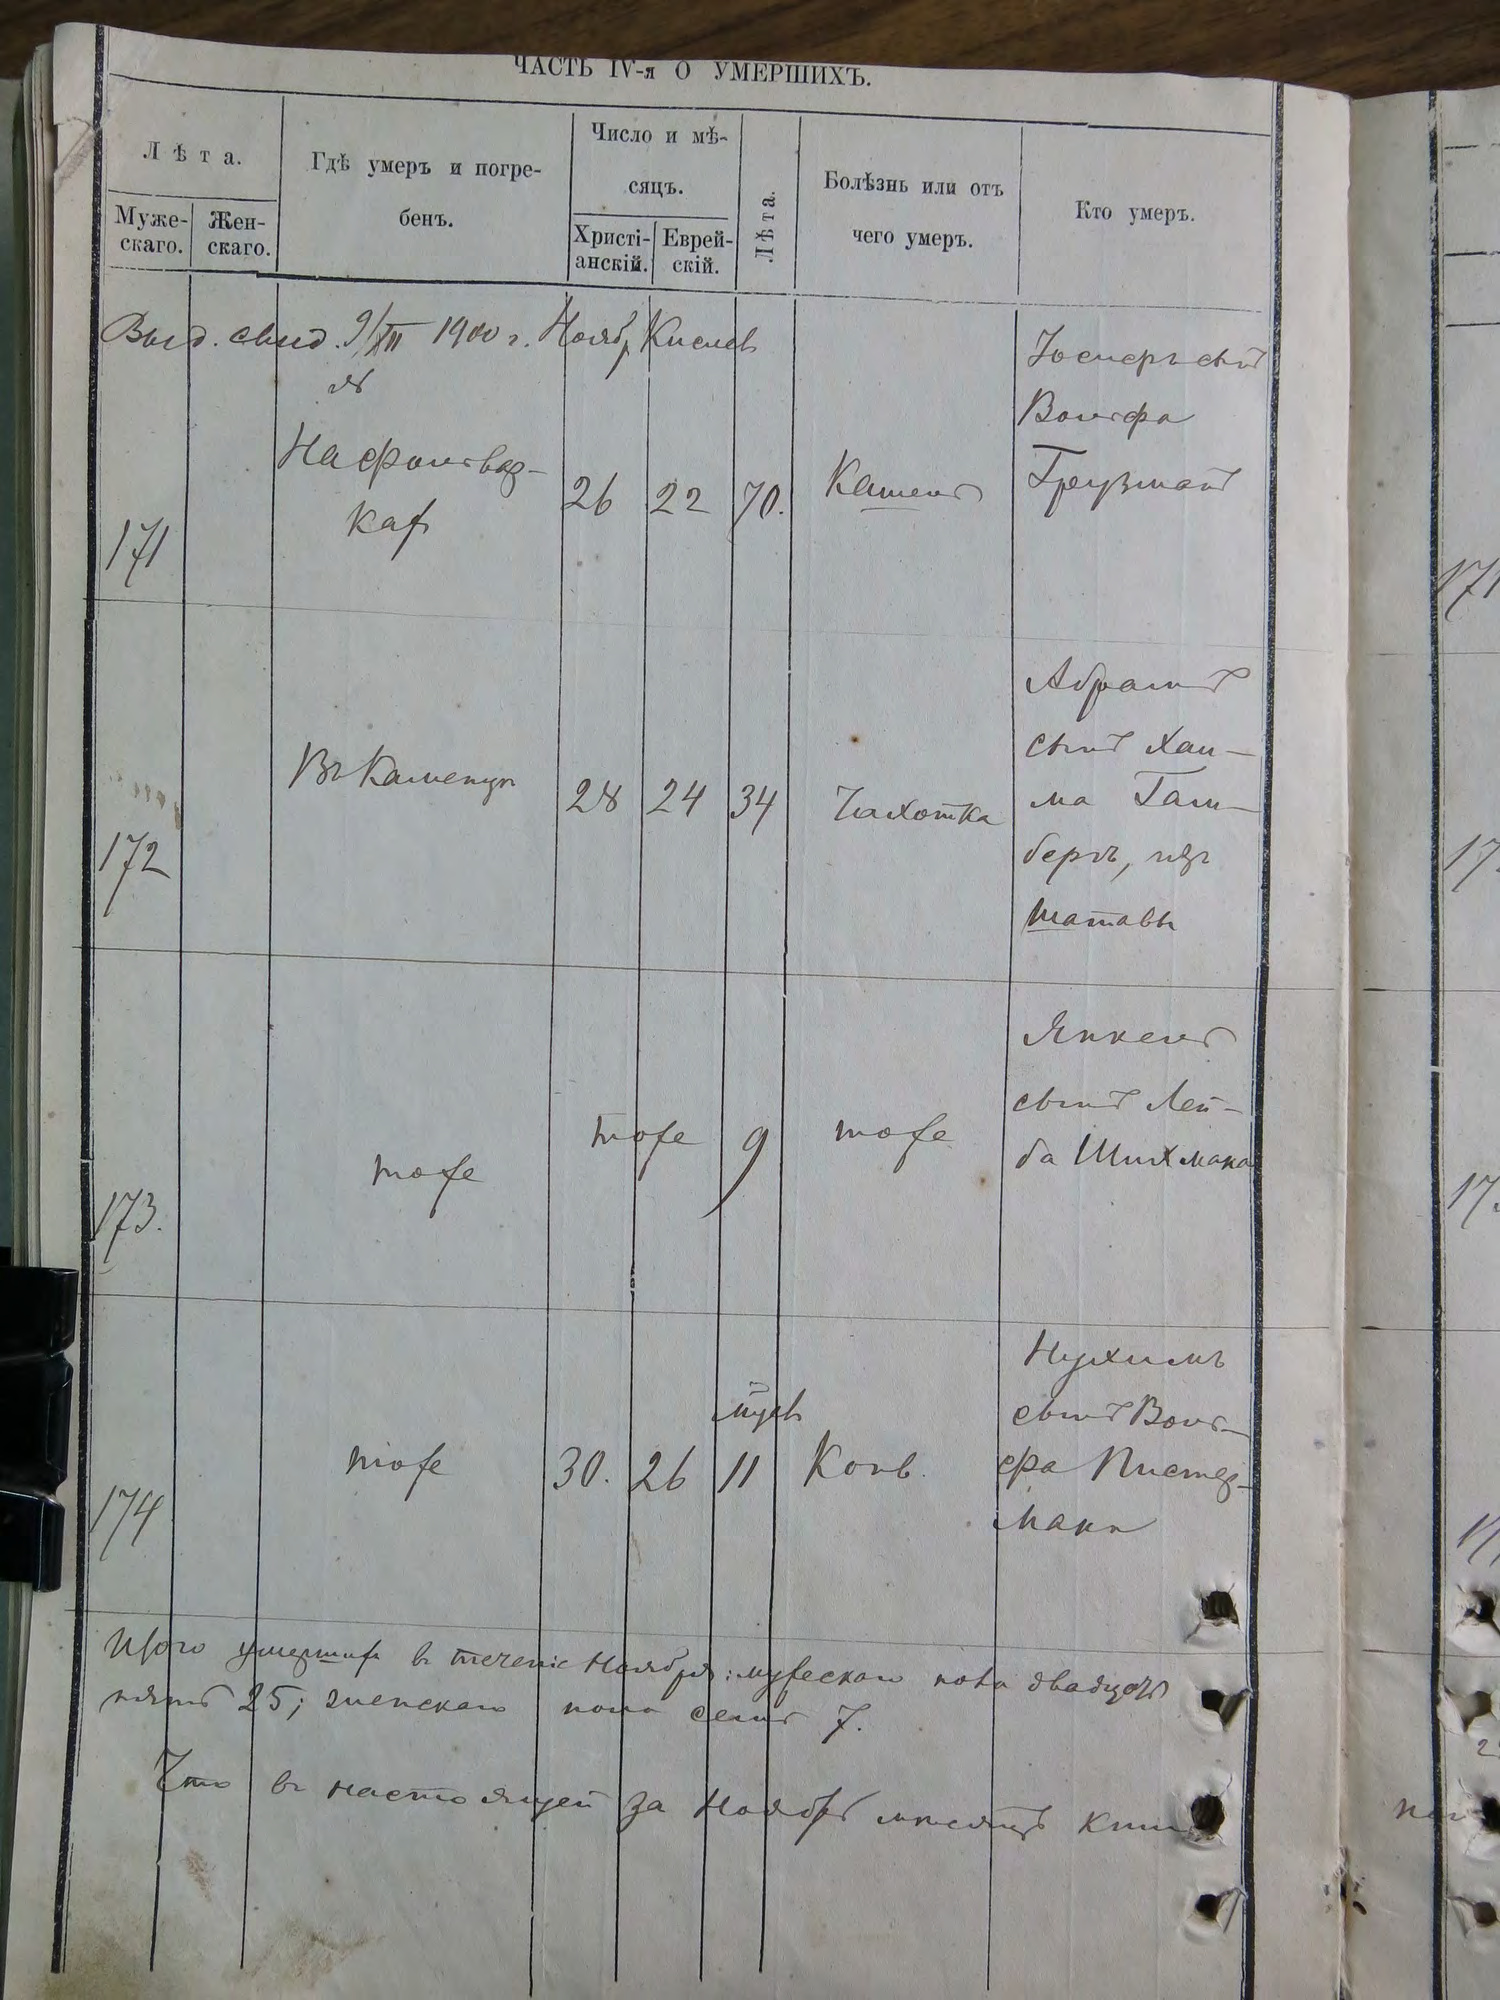 ЧАСТЬ IV-я О УМЕРШИХЪ.
Лѣта.
Муже-
скаго.
Жен-
скаго.
Гдѣ умеръ и погре-
бенъ.
Число и мѣ-
сяцъ.
Христі-
анскій.
Еврей-
скій.
Лѣта.
Болѣзнь или отъ
чего умеръ.
Кто умеръ.
Выд. свид. 9/XII 1900 г. Ноябр Кислев
171
На фольвар-
ках
26
22
70.
Кашель
Іосперъ сынъ
Вольфа
Грузманъ
172
Въ Каменцѣ
28
24
34
Чахотка
Абрамъ
сынъ Хаи-
ма Гаш-
бергъ, изъ
Шатавы
173.
тоже
тоже
9
тоже
Янкель
сынъ Лей-
ба Шихмана
174
тоже
30.
26
11
мцев
Конв.
Нухимъ
сынъ Воль-
фа Пистер-
мана
Итого умерших в течение Ноября: мужескаго пола двадцать
пять 25; женскаго пола семь 7.
Что въ настоящей за Ноябрь мѣсяцъ
171